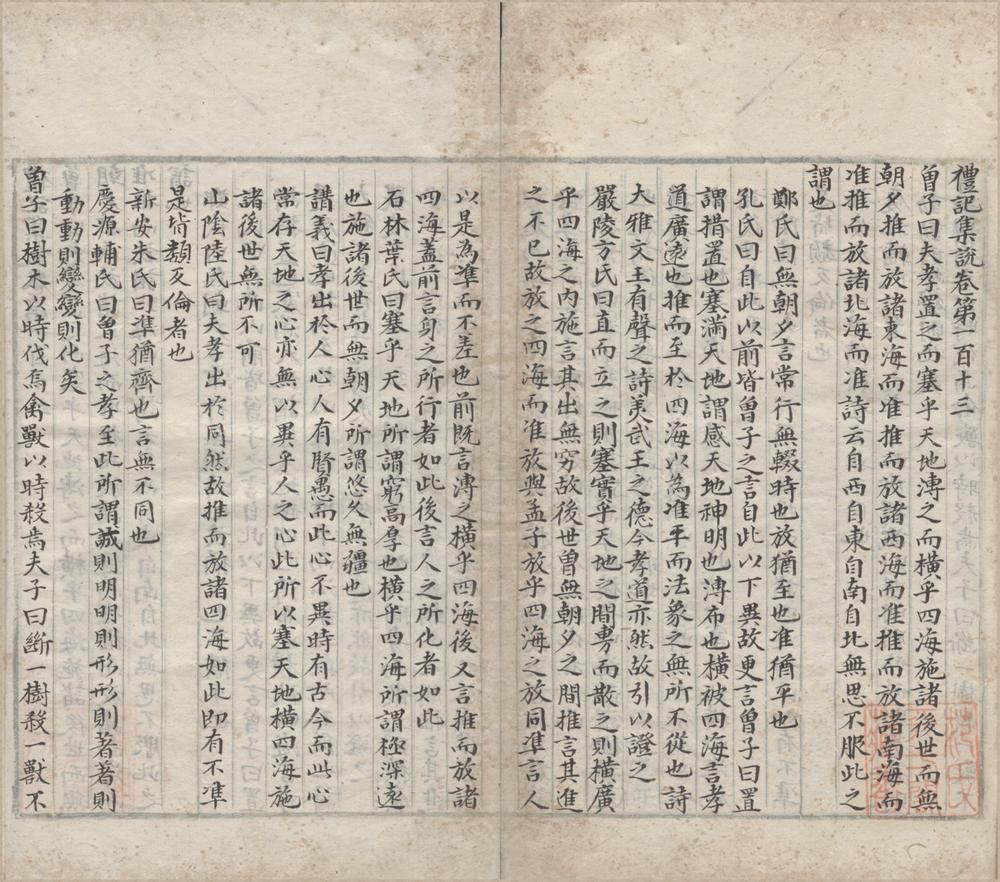 禮記集說卷第一百十三
曾子曰夫孝置之而塞乎天地溥之而橫乎四海施諸後世而無
朝夕推而放諸東海而准推而放諸西海而准推而放諸南海而
准推而放諸北海而准詩云自西自東自南自北無思不服此之
謂也
鄭氏曰無朝夕言常行無輟時也放猶至也准猶平也
孔氏曰自此以前皆曾子之言自此以下異故更言曾子曰置
謂措置也塞滿天地謂感天地神明也溥布也橫被四海言孝
道廣遠也推而至於四海以為准平而法象之無所不從也詩
大雅文王有聲之詩美武王之德今孝道亦然故引以證之
嚴陵方氏曰直而立之則塞實乎天地之間旁而散之則橫廣
乎四海之內施言其出無窮故後世曾無朝夕之間推言其進
之不已故放之四海而准放與孟子放乎四海之放同準言人
以是為準而不差也前既言溥之橫乎四海後又言推而放諸
四海蓋前言身之所行者如此後言人之所化者如此
石林葉氏曰塞乎天地所謂窮高厚也橫乎四海所謂極深遠
也施諸後世而無朝夕所謂悠久無疆也
講義曰孝出於人心人有賢愚而此心不異時有古今而此心
常存天地之心亦無以異乎人之心此所以塞天地橫四海施
諸後世無所不可
山陰陸氏曰夫孝出於同然故推而放諸四海如此即有不準
是皆顡叉倫者也
新安朱氏曰準猶齊也言無不同也
慶源輔氏曰曾子之孝至此所謂誠則明明則形形則著著則
動動則變變則化矣
曾子曰樹木以時伐焉禽獸以時殺焉夫子曰斷一樹殺一獸不